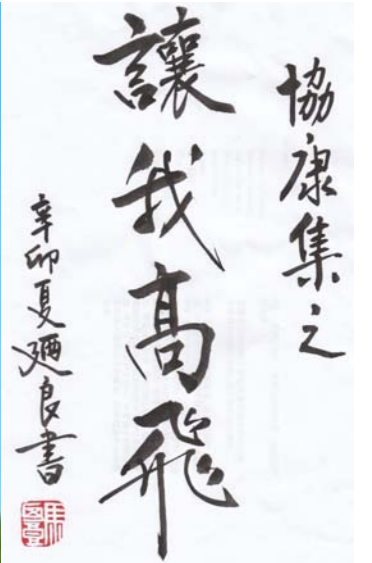 協康集之
讓我高飛
辛卯夏邇良書